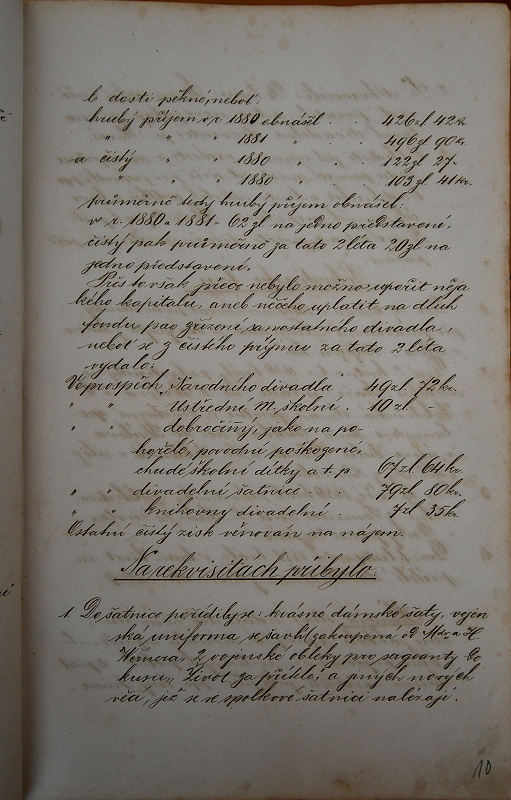 b. dosti pěkné, neboť:
hrubý příjem v r. 1880 obnášel . . 426 zl 42 kr.
" " " 1881 " . . 496 zl. 90 kr.
a čistý " " 1880 " . . 122 zl. 27.
" " " 1880 " . . 103 zl. 41 kr.
průměrně tedy hrubý příjem obnášel:
v r. 1880 a 1881 - 62 zl na jedno představení,
čistý pak průměrně za tato 2 léta 20 zl na
jedno představení.
Přes to však přece nebylo možno uspořit něja
kého kapitálu, aneb něčeho uplatit na dluh
fondu pro zřízení samostatného divadla,
neboť se z čistého příjmu za tato 2 léta
vydalo:
Ve prospěch "Národního divadla" 49 zl. 72 kr.
" " Ústřední M. školní . 10 zl. -
" " dobročiny, jako na po-
hořelé, povodní poškozené,
chudé školní dítky a t. p. 67 zl 64 kr.
" " divadelní šatnice . . 79 zl. 80 kr.
" " knihovny divadelní . 7 zl. 35 kr.
Ostatní čistý zisk věnován na nájem.
Na rekvisitách přibylo.
1. Do šatnice pořídily se: krásné dámské šaty, vojen
ská uniforma se šavlí zakoupená od
Wernera, 2 vojenské obleky pro sergeanty
kusu "Život za přítele", a jiných nových
věcí, jež se ve spolkové šatnici nalézají.
10